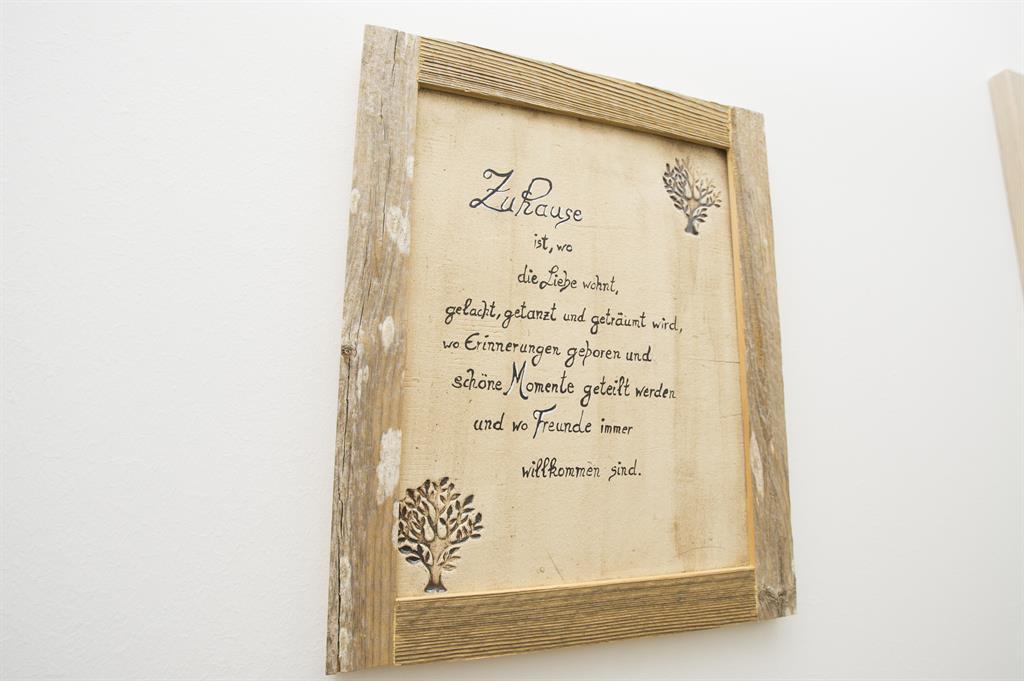 Zuhause
ist, wo
die Liebe wohnt,
gelacht, getanzt und geträumt wird,
wo Erinnerungen geboren und
schöne Momente geteilt werden
und wo Freunde immer
willkommen sind.